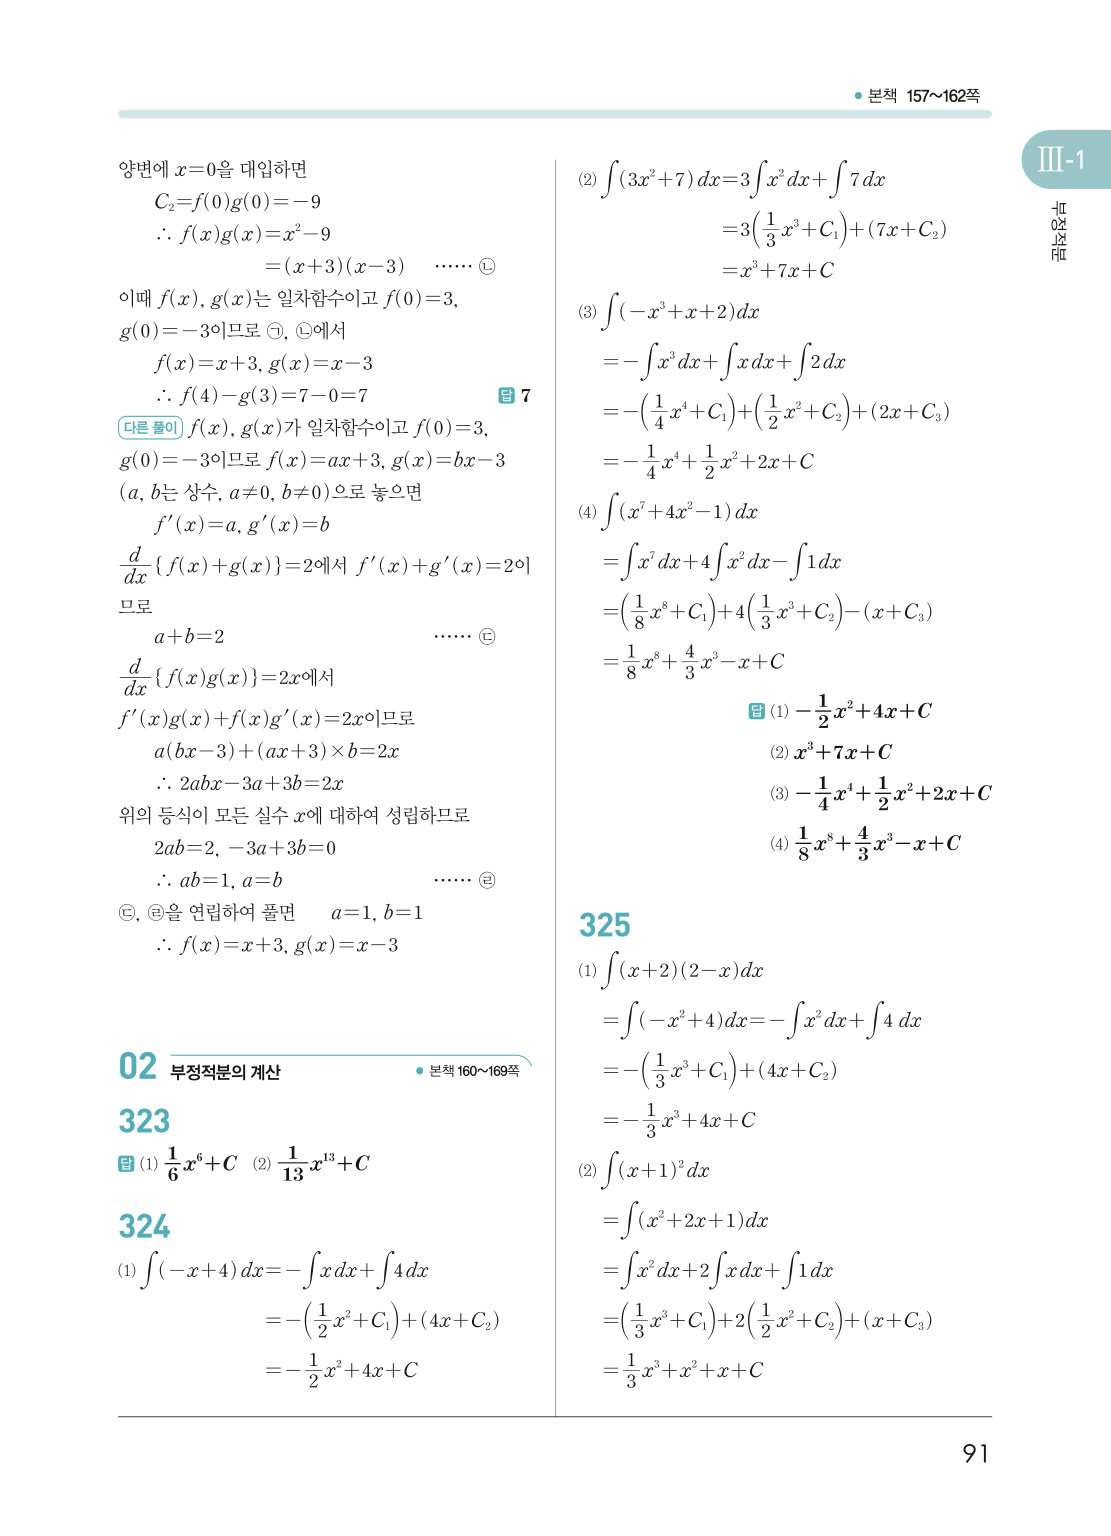 ● 본책 157~162쪽
Ⅲ-1
부정적분
양변에 x=0을 대입하면
C₂=f(0)g(0)=-9
∴ f(x)g(x)=x²-9
=(x+3)(x-3) …… ㉡
이때 f(x), g(x)는 일차함수이고 f(0)=3,
g(0)=-3이므로 ㉠, ㉡에서
f(x)=x+3, g(x)=x-3
∴ f(4)-g(3)=7-0=7 답 7
다른 풀이 f(x), g(x)가 일차함수이고 f(0)=3,
g(0)=-3이므로 f(x)=ax+3, g(x)=bx-3
(a, b는 상수, a≠0, b≠0)으로 놓으면
f′(x)=a, g′(x)=b
d/dx{f(x)+g(x)}=2에서 f′(x)+g′(x)=2이
므로
a+b=2 …… ㉢
d/dx{f(x)g(x)}=2x에서
f′(x)g(x)+f(x)g′(x)=2x이므로
a(bx-3)+(ax+3)×b=2x
∴ 2abx-3a+3b=2x
위의 등식이 모든 실수 x에 대하여 성립하므로
2ab=2, -3a+3b=0
∴ ab=1, a=b …… ㉣
㉢, ㉣을 연립하여 풀면 a=1, b=1
∴ f(x)=x+3, g(x)=x-3
02 부정적분의 계산 ● 본책 160~169쪽
323
답 (1) 1/6 x⁶+C (2) 1/13 x¹³+C
324
(1) ∫(-x+4)dx=-∫xdx+∫4dx
=-(1/2 x²+C₁)+(4x+C₂)
=-1/2 x²+4x+C
(2) ∫(3x²+7)dx=3∫x²dx+∫7dx
=3(1/3 x³+C₁)+(7x+C₂)
=x³+7x+C
(3) ∫(-x³+x+2)dx
=-∫x³dx+∫xdx+∫2dx
=-(1/4 x⁴+C₁)+(1/2 x²+C₂)+(2x+C₃)
=-1/4 x⁴+1/2 x²+2x+C
(4) ∫(x⁷+4x²-1)dx
=∫x⁷dx+4∫x²dx-∫1dx
=(1/8 x⁸+C₁)+4(1/3 x³+C₂)-(x+C₃)
=1/8 x⁸+4/3 x³-x+C
답 (1) -1/2 x²+4x+C
(2) x³+7x+C
(3) -1/4 x⁴+1/2 x²+2x+C
(4) 1/8 x⁸+4/3 x³-x+C
325
(1) ∫(x+2)(2-x)dx
=∫(-x²+4)dx=-∫x²dx+∫4 dx
=-(1/3 x³+C₁)+(4x+C₂)
=-1/3 x³+4x+C
(2) ∫(x+1)²dx
=∫(x²+2x+1)dx
=∫x²dx+2∫xdx+∫1dx
=(1/3 x³+C₁)+2(1/2 x²+C₂)+(x+C₃)
=1/3 x³+x²+x+C
91